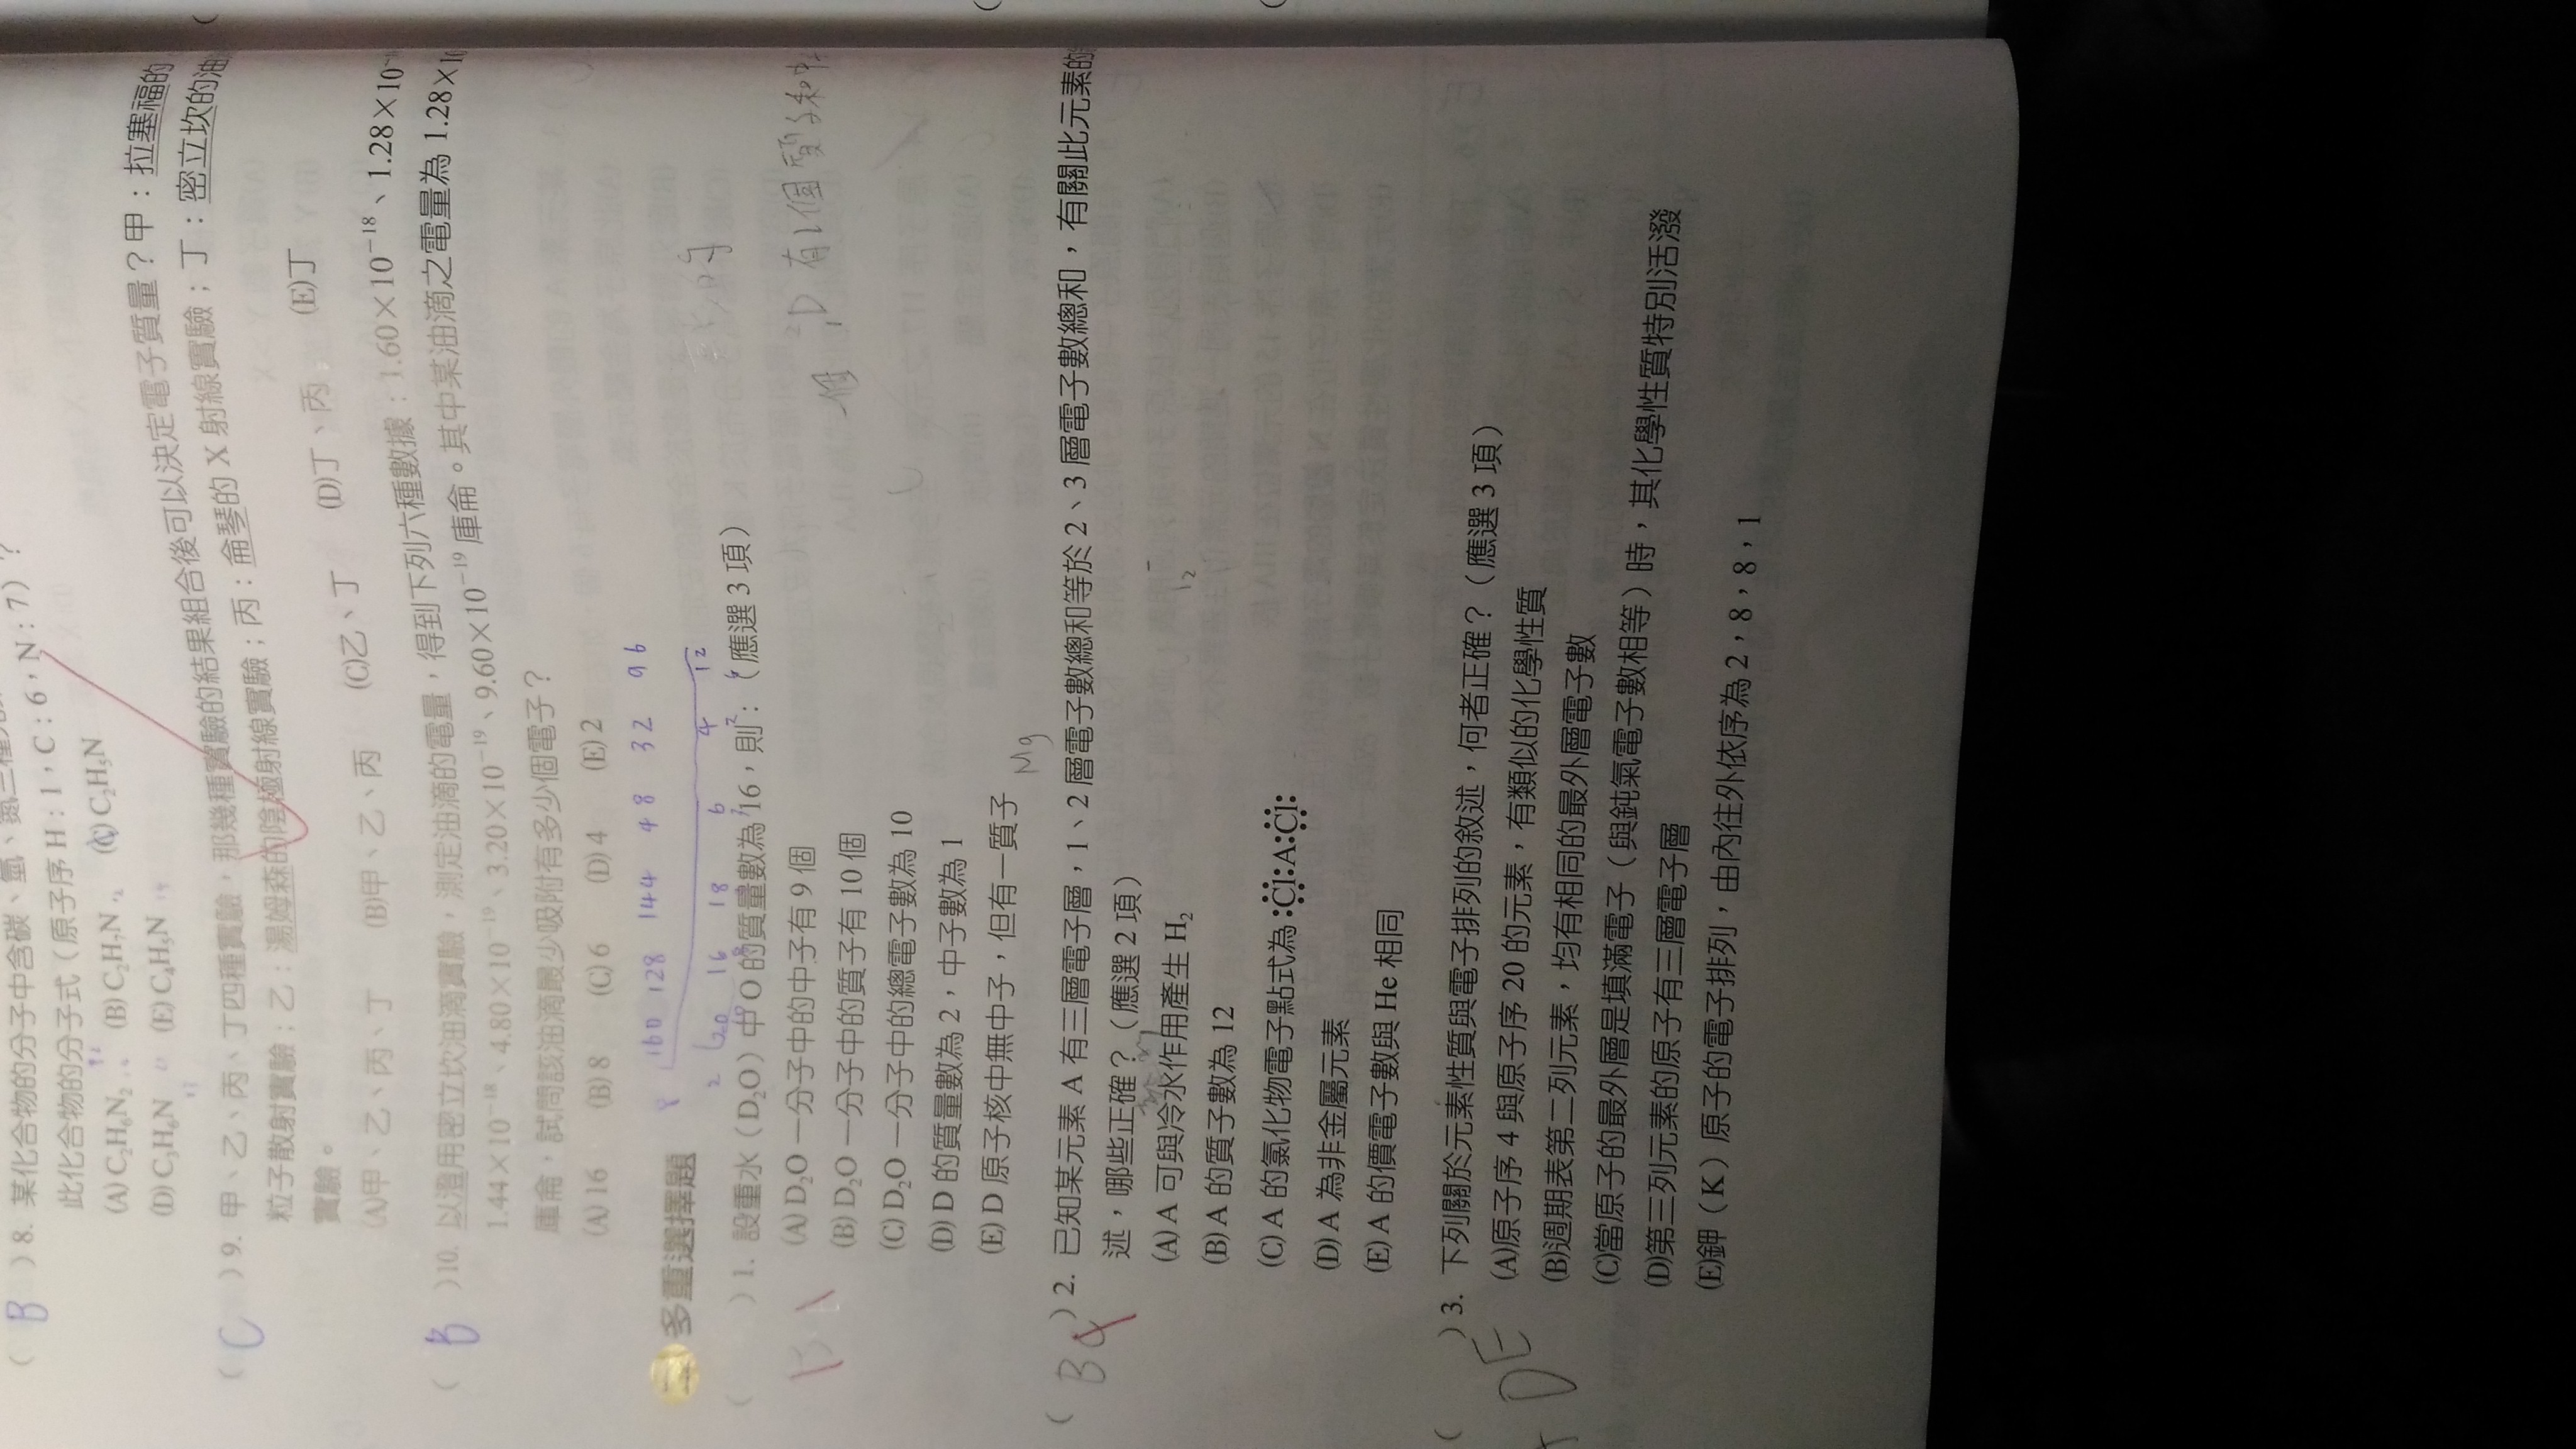 ( B )8. 某化合物的分子中含碳、氫、氮三種
此化合物的分子式（原子序 H：1，C：6，N：7）？
(A) C₂H₆N₂ (B) C₂H₇N (C) C₂H₅N
(D) C₃H₆N (E) C₄H₅N
( C )9. 甲、乙、丙、丁四種實驗，那幾種實驗的結果組合後可以決定電子質量？甲：拉塞福的
粒子散射實驗；乙：湯姆森的陰極射線實驗；丙：侖琴的 X 射線實驗；丁：密立坎的油
實驗。
(A)甲、乙、丙、丁 (B)甲、乙、丙 (C)乙、丁 (D)丁、丙 (E)丁
( B )10. 以溼用密立坎油滴實驗，測定油滴的電量，得到下列六種數據：1.60×10⁻¹⁸、1.28×10⁻
1.44×10⁻¹⁸、4.80×10⁻¹⁹、3.20×10⁻¹⁹、9.60×10⁻¹⁹ 庫侖。其中某油滴之電量為 1.28×10
庫侖，試問該油滴最少吸附有多少個電子？
(A) 16 (B) 8 (C) 6 (D) 4 (E) 2
8 160 128 144 48 32 96
2 20 16 18 6 4 12
多重選擇題
( )1. 設重水（D₂O）中 O 的質量數為 16，則：（應選 3 項）
(A) D₂O 一分子中的中子有 9 個
(B) D₂O 一分子中的質子有 10 個
(C) D₂O 一分子中的總電子數為 10
(D) D 的質量數為 2，中子數為 1
(E) D 原子核中無中子，但有一質子
Mg
( B )2. 已知某元素 A 有三層電子層，1、2 層電子數總和等於 2、3 層電子數總和，有關此元素的
述，哪些正確？（應選 2 項）
(A) A 可與冷水作用產生 H₂
(B) A 的質子數為 12
(C) A 的氯化物電子點式為 :Cl:A:Cl:
(D) A 為非金屬元素
(E) A 的價電子數與 He 相同
( DE )3. 下列關於元素性質與電子排列的敘述，何者正確？（應選 3 項）
(A)原子序 4 與原子序 20 的元素，有類似的化學性質
(B)週期表第二列元素，均有相同的最外層電子數
(C)當原子的最外層是填滿電子（與鈍氣電子數相等）時，其化學性質特別活潑
(D)第三列元素的原子有三層電子層
(E)鉀（K）原子的電子排列，由內往外依序為 2，8，8，1